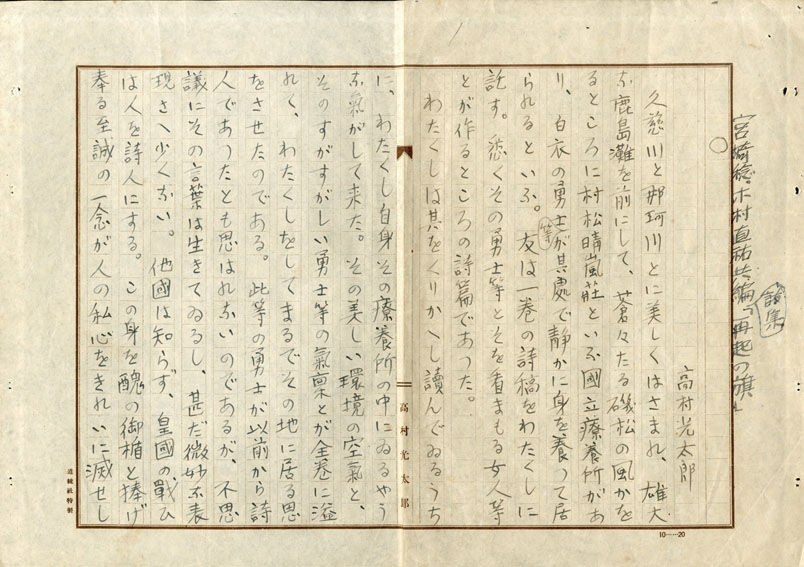 宮崎稔。木村直祐共編「再起の旗」
詩集
高村光太郎
久慈川と那珂川とに美しくはさまれ、雄大
な鹿島灘を前にして、蒼々たる磯松の風かを
るところに村松晴嵐荘といふ國立療養所があ
り、白衣の勇士が其處で静かに身を養つて居
られるといふ。友は一巻の詩稿をわたくしに
等
託す。悉くその勇士等とそを看まもる女人等
とが作るところの詩篇であつた。
わたくしは其をくりかへし讀んでゐるうち
に、わたくし自身その療養所の中にゐるやう
な氣がして来た。その美しい環境の空氣と、
そのすがすがしい勇士等の氣禀とが全巻に溢
れて、わたくしをしてまるでその地に居る思
をさせたのである。此等の勇士が以前から詩
人であつたとも思はれないのであるが、不思
議にその言葉は生きてゐるし、甚だ微妙な表
現さへ少くない。他國は知らず、皇國の戰ひ
は人を詩人にする。この身を醜の御楯と捧げ
奉る至誠の一念が人の私心をきれいに滅せし
高村光太郎
10……20